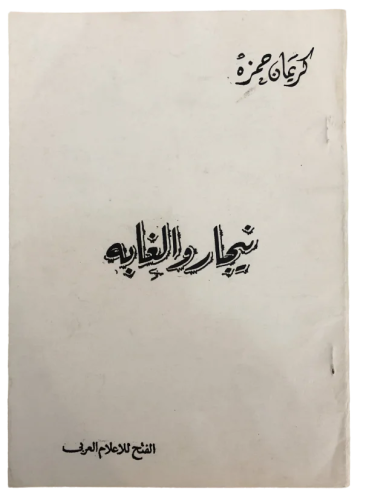 كريمان حمزه
نيجار والغابه
الفتح للاعلام العربى